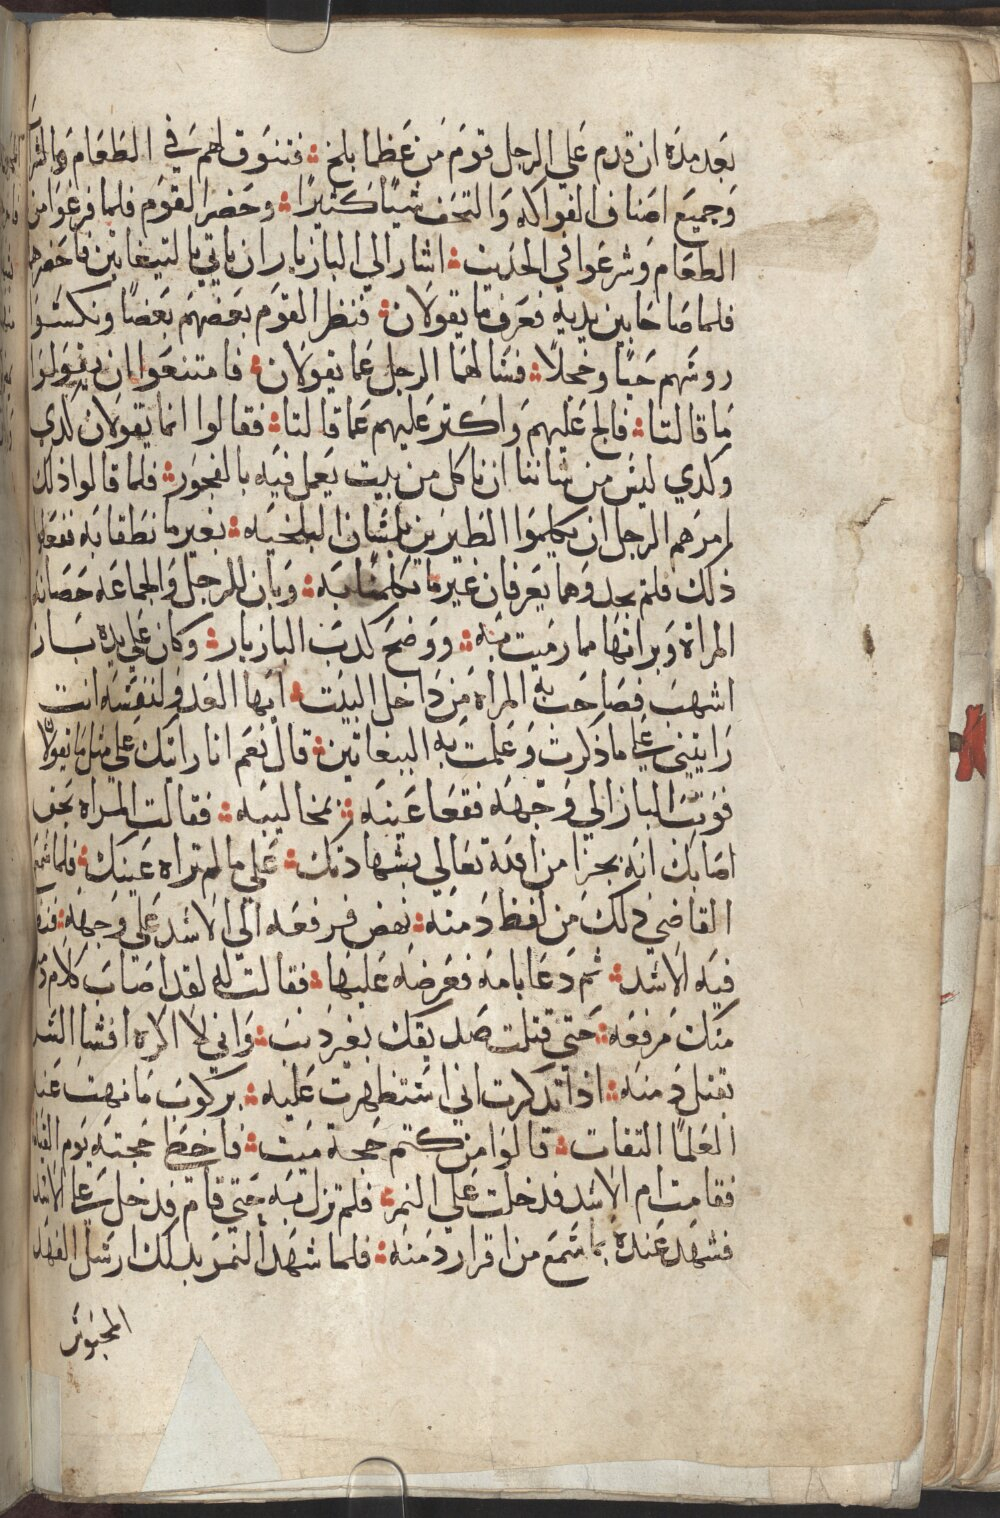 بعد مده ان قدم علي الرجل قوم من عظما بلخ فتنوق لهم في الطعام والشراب
وجميع اصناف الفواكه والتحف شيا كثيرا وحضر القوم فلما فرغوا من
الطعام وشرعوا في الحديث اشار الي البازيار ان ياتي بالببغاتين فاحضرهم
فلما صاحا بين يديه فعرف ما يقولان فنظر القوم بعضهم بعضا ونكسوا
روسهم حيا وخجلا فسالهما الرجل عما يقولان فامتنعوا ان يقولوا
ما قالتا فالح عليهم واكتر عليهم عما قالتا فقالوا انما يقولان كدي
وكدي ليس من شاننا ان ناكل من بيت يعمل فيه بالفجور فلما قالوا ذلك
امرهم الرجل ان يكلموا الطيرين بلسان البلخيه بغير ما نطقا به ففعلوا
ذلك فلم يجدوهما يعرفان غير ما تكلمتا به وبان للرجل والجماعه حصانة
المراة وبراتها مما رميت به ووضح كدب البازيار وكان علي يده باز
اشهب فصاحت به المراه من داخل البيت ايها العدو لنفسه انت
رايتني علي ما ذكرت وعلمت به الببغاتين قال نعم انا رايتك علي مثل ما تقولا
فوتب الباز الي وجهه فقعا عينه بمخاليبه فقالت المراه بحق
اصابك انه بجزا من الله تعالي بشهادتك علي ما لم تراه عينك فلما سمع
القاضي ذلك من لفظ دمنه نهض فرفعه الي الاسد علي وجهه فنظر
فيه الاسد ثم دعا بامه فعرضه عليها فقالت له لقد اصاب كلام
منك مرفعه حتي قتلت صديقك بغير دنب واني لا اكره افشا السر
بقتل دمنه اذا تدكرت اني استظهرت عليه بركوب ما نهت عنه
العلما التقات قالوا من كتم حجة ميت فاخطا حجته يوم القيامه
فقامت ام الاسد فدخلت علي النمر فلم تزل به حتي قام فدخل علي الاسد
فشهد عنده بما سمع من اقرار دمنه فلما شهد النمر بدلك ارسل الفهد
المحبوس